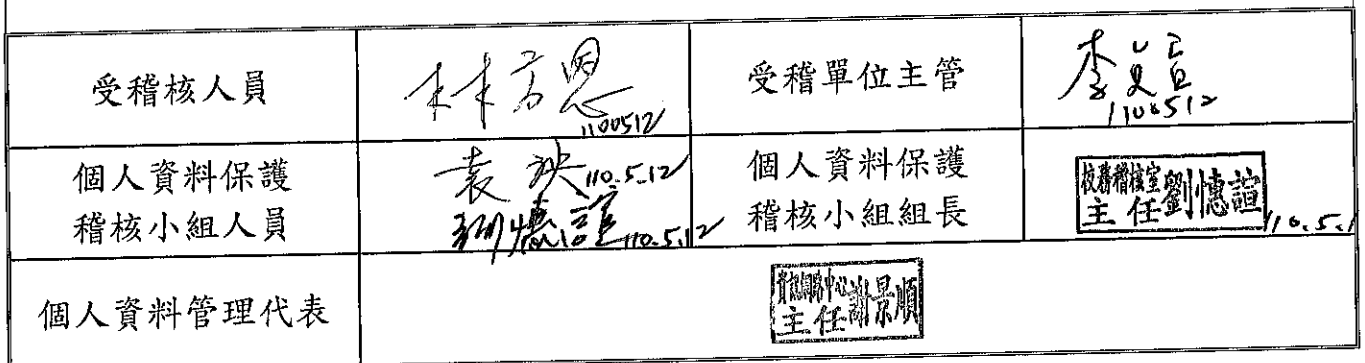 受稽核人員 林方恩 1100512 受稽單位主管 李 1100512
個人資料保護 稽核小組人員 袁 110.5.12
劉憓諠 110.5.12
個人資料保護 稽核小組組長 校務稽核室 主任 劉憓諠 110.5.1
個人資料管理代表 主任 謝景順